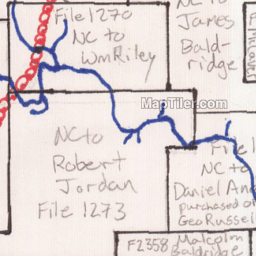 File 1270
NC to
Wm Riley
NC to
James
Bald-
ridge
MapTiler.com
NC to
Robert
Jordan
File 1273
File 1
NC to
Daniel An
purchased o
Geo Russel
F2358 Malcolm
Baldridge